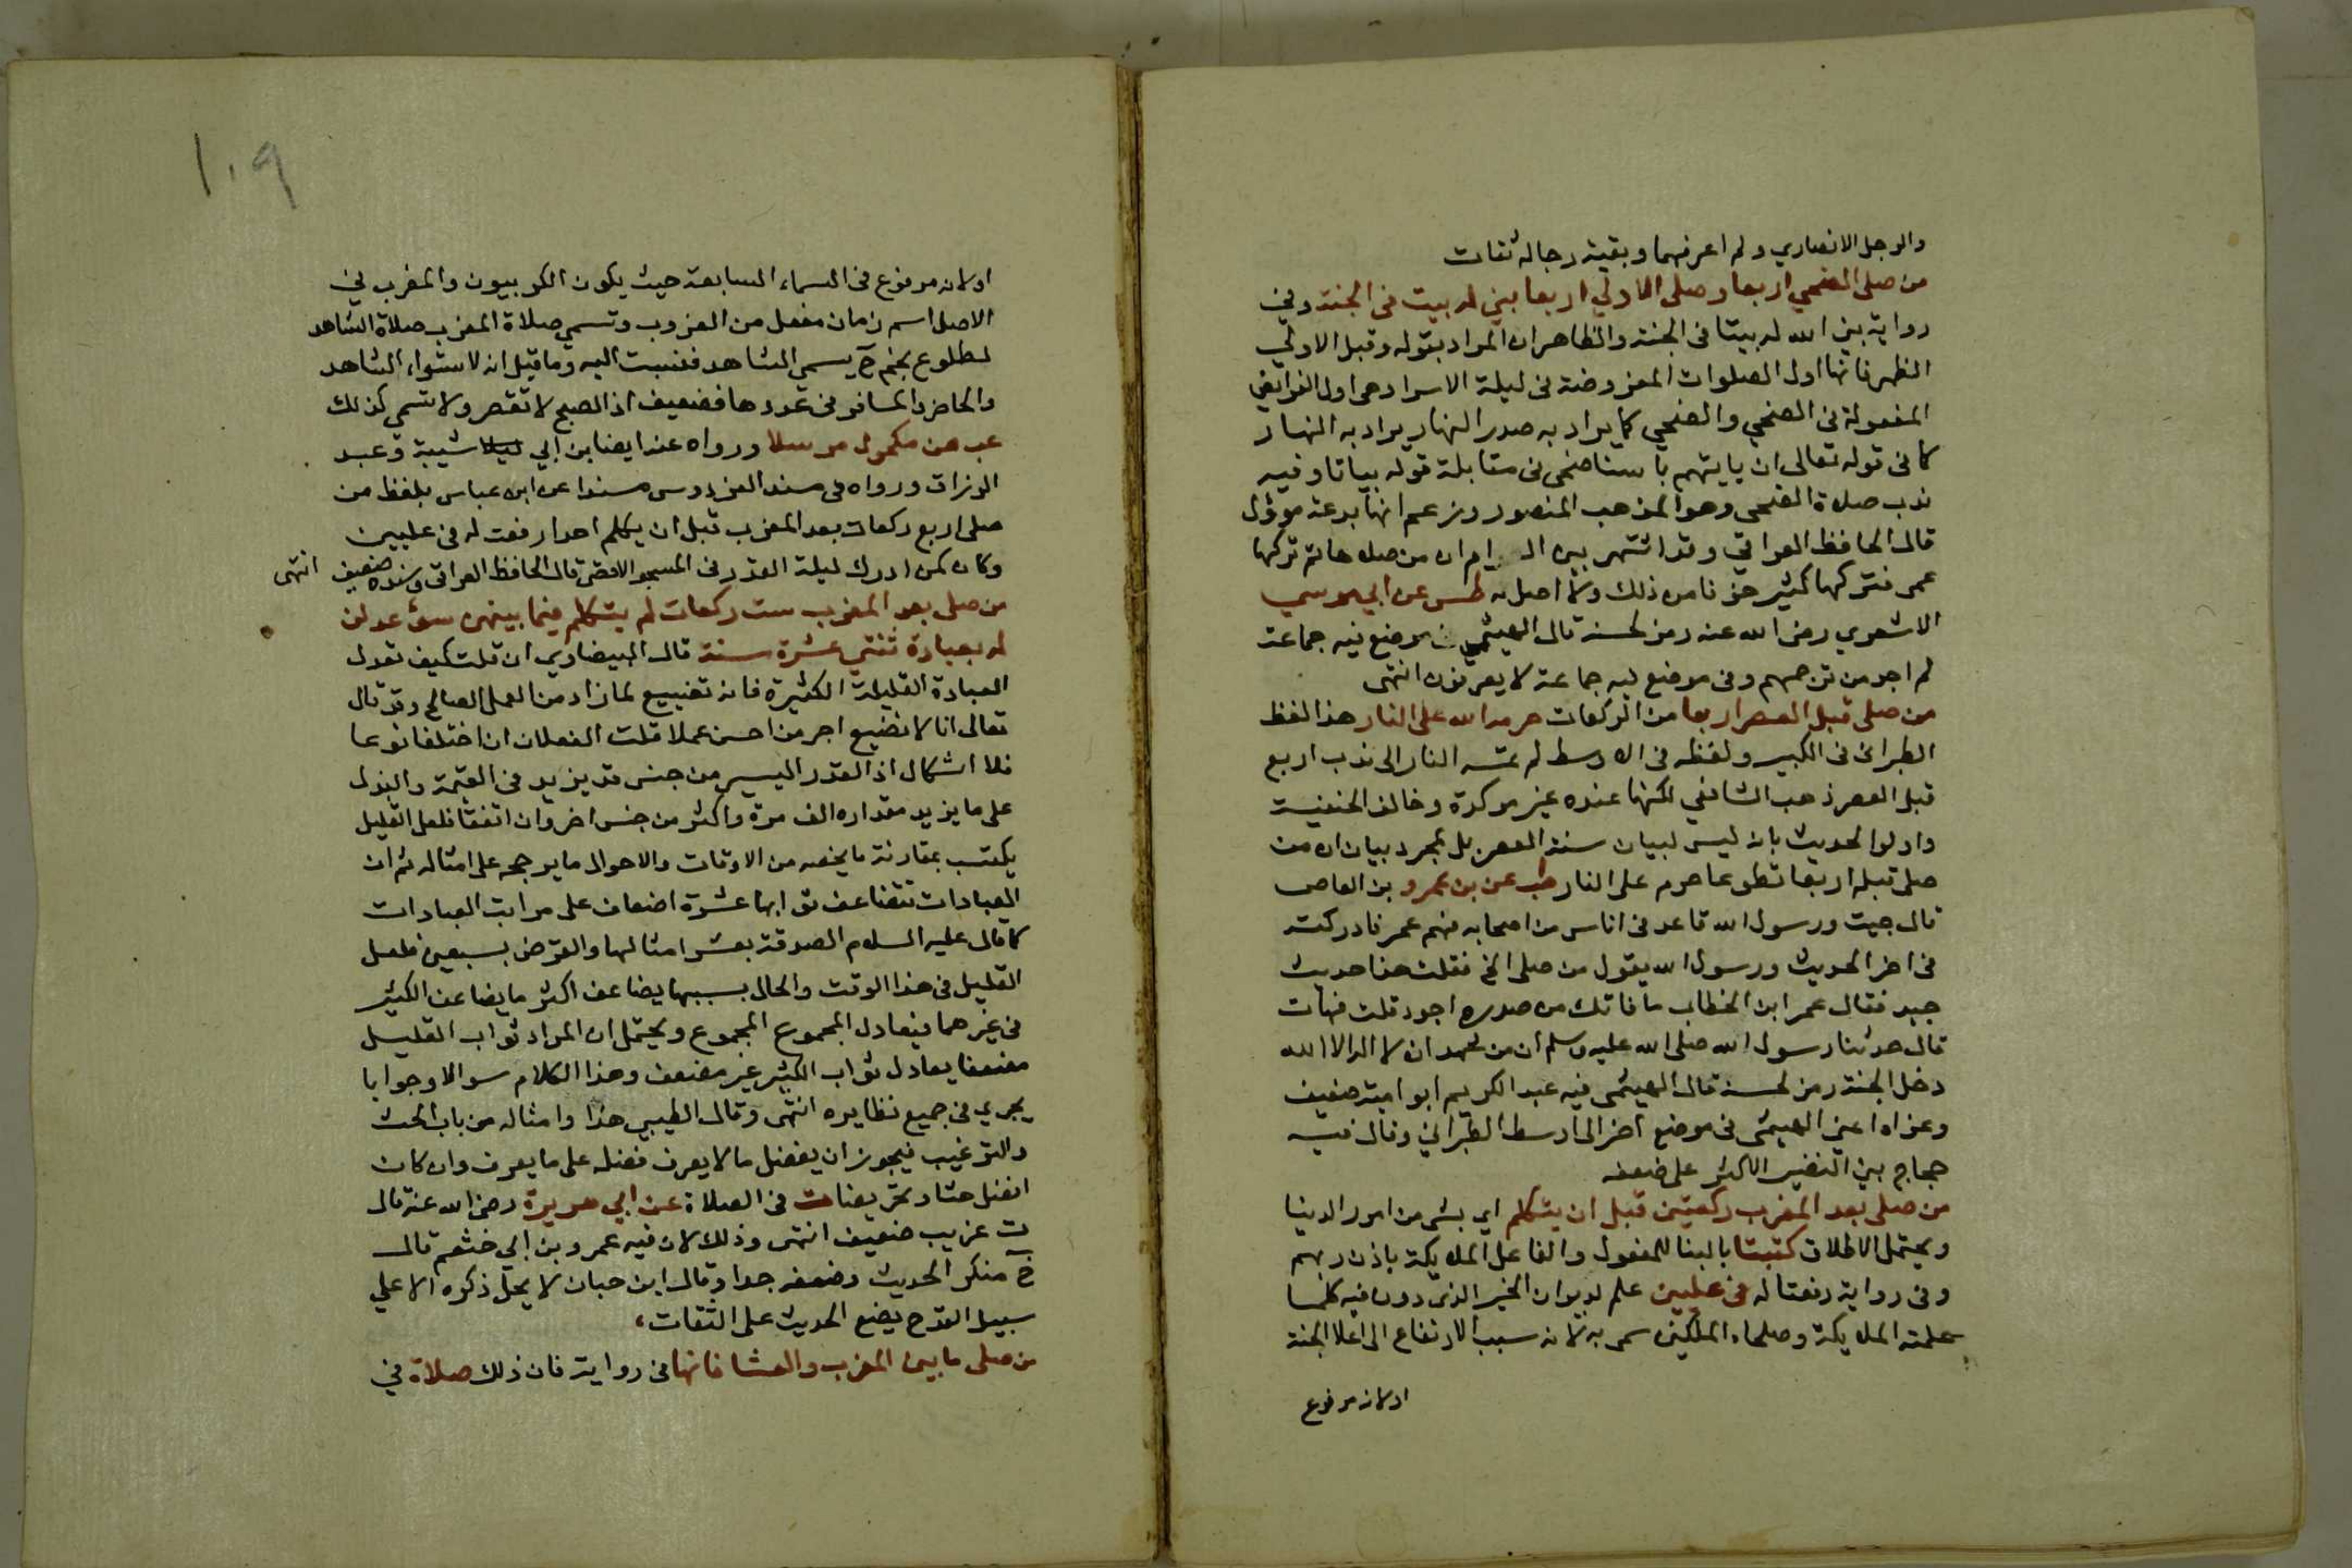 والرجل الانصاري ولم اعرفهما وبقية رجاله ثقات
من صلى الضحي اربعا وصلى الاولي اربعا بني له بيت في الجنة وفي
رواية بني الله له بيتا في الجنة والظاهر ان المراد بقوله وقبل الاولي
الظهر فانها اول الصلوات المفروضة في ليلة الاسرا وهي اول الفرايض
المفعولة في الضحي والضحي كما يراد به صدر النهار يراد به النهار
كما في قوله تعالى ان ياتيهم باسنا ضحى في مقابلة قوله بياتا وفيه
ندب صلاة الضحى وهو المذهب المنصور وزعم انها بدعة مؤول
قال الحافظ العراقي وقد اشتهر بين ان من صلاها ثم تركها
عمى فتركها كثير خوفا من ذلك ولا اصل له طس عن ابي موسي
الاشعري رضى الله عنه رمز لحسنه قال الهيثمي في موضع فيه جماعة
لم اجد من ترجمهم وفي موضع فيه جماعة لا يعرفون انتهى
من صلى قبل العصر اربعا من الركعات حرمه الله على النار هذا لفظ
الطبراني في الكبير ولفظه في الاوسط لم تمسه النار الى ندب اربع
قبل العصر ذهب الشافعي لكنها عنده غير موكدة وخالف الحنفية
واولوا الحديث بانه ليس لبيان سنة العصر بل لمجرد بيان ان من
صلى قبله اربعا تطوعا حرم على النار طب عن بن عمرو بن العاص
قال جيت ورسول الله قاعد في اناس من اصحابه فيهم عمر فادركت
في اخر الحديث ورسول الله يقول من صلى الخ فقلت هذا حديث
جيد فقال عمر ابن الخطاب ما فاتك من صدره اجود قلت فهات
قال حدثنا رسول الله صلى الله عليه وسلم ان من شهد ان لا اله الا الله
دخل الجنة رمز لحسنه قال الهيثمى فيه عبد الكريم ابو امية ضعيف
وعزاه اعني الهيثمى في موضع اخر الى اوسط الطبراني وقال فيه
حجاج بن النضير الاكثر على ضعفه
من صلى بعد المغرب ركعتين قبل ان يتكلم اي بشى من امور الدنيا
ويحتمل الاطلاق كتبتا بالبنا للمفعول والفاعل الملايكة باذن ربهم
وفي رواية رفعتا له في عليين علم لديوان الخير الذي دون فيه كلما
عملته الملايكة وصلحاء الملكين سمى به لانه سبب الارتفاع الى اعلا الجنة
اولانه مرفوع
١٠٩
اولانه مرفوع في السماء السابعة حيث يكون الكروبيون والمغرب في
الاصل اسم زمان مفعل من الغروب وتسمي صلاة المغرب صلاة الشاهد
لطلوع نجم ح يسمى الشاهد فنسبت اليه وما قيل انه لاستواء الشاهد
والحاضر والمسافر في عددها فضعيف اذ الصبح لا تقصر ولا تسمى كذلك
عب عن مكحول مرسلا ورواه عنه ايضا بن ابي شيبة وعبد
الرزاق ورواه في مسند الفردوس مسندا عن ابن عباس بلفظ من
صلى اربع ركعات بعد المغرب قبل ان يكلم احدا رفعت له في عليين
وكان كمن ادرك ليلة القدر في المسجد الاقصى قال الحافظ العراقي وسنده ضعيف انتهى
من صلى بعد المغرب ست ركعات لم يتكلم فيما بينهن بسوء عدلن
له بعبادة ثنتي عشرة سنة قال البيضاوي ان قلت كيف تعدل
العبادة القليلة الكثيرة فانه تضييع لما زاد من العمل الصالح وقد قال
تعالى انا لا نضيع اجر من احسن عملا قلت الفعلان ان اختلفا نوعا
فلا اشكال اذ القدر اليسير من جنس قد يزيد في القيمة والبدل
على ما يزيد مقداره الف مرة واكثر من جنس اخر وان اتفقا فلعل القليل
يكتسب بمقارنة ما يخصه من الاوقات والاحوال ما يرجحه على امثاله ثم ان
العبادات تتضاعف ثوابها عشرة اضعاف على مراتب العبادات
كما قال عليه السلام الصدقة بعشر امثالها والقرض بسبعين فلعل
القليل في هذا الوقت والحال بسببهما يضاعف اكثر ما يضاعف الكثير
في غيرهما فيعادل المجموع المجموع ويحتمل ان المراد ثواب القليل
مضعفا يعادل ثواب الكثير غير مضعف وهذا الكلام سوالا وجوابا
يجري في جميع نظايره انتهى وقال الطيبي هذا وامثاله من باب الحث
والترغيب فيجوز ان يفضل ما لا يعرف فضله على ما يعرف وان كان
افضل حثا وتحريضا ت في الصلاة عن ابي هريرة رضى الله عنه قال
ت غريب ضعيف انتهى وذلك لان فيه عمرو بن ابي خثعم قال
خ منكر الحديث وضعفه جدا وقال ابن حبان لا يحل ذكره الا علي
سبيل القدح يضع الحديث على الثقات،
من صلى ما بين المغرب والعشا فانها في رواية فان ذلك صلاة في